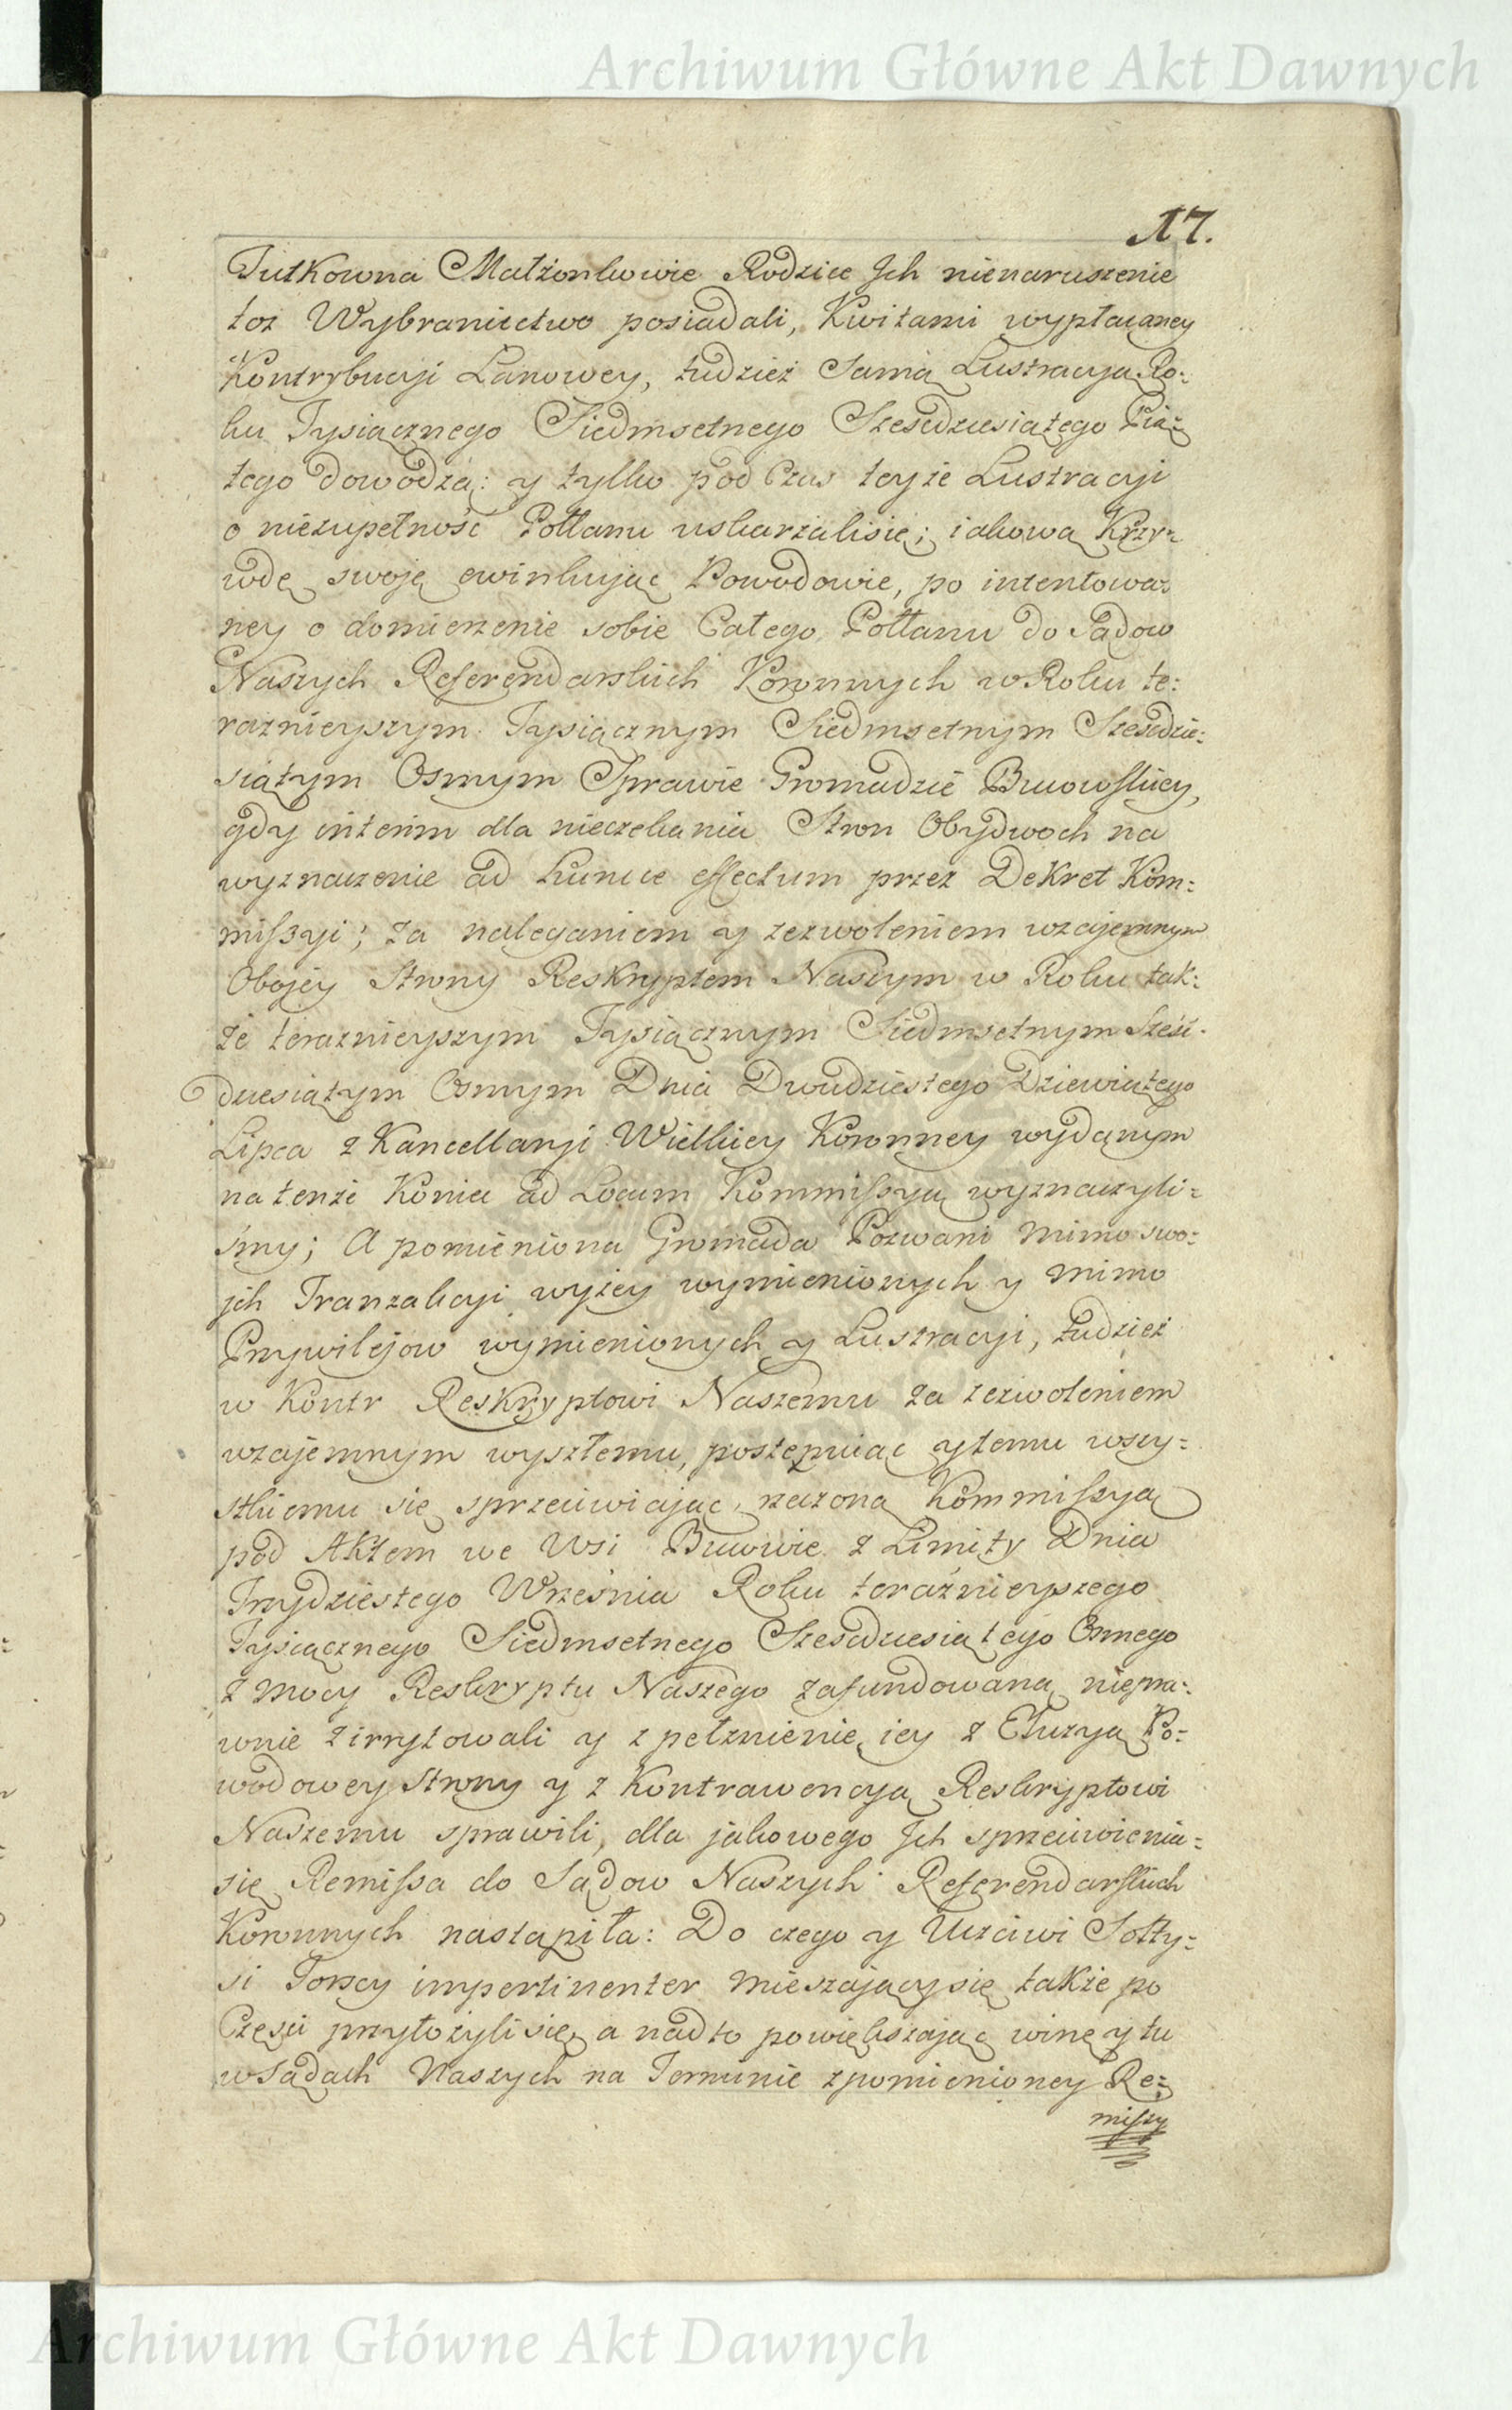 Archiwum Główne Akt Dawnych
17.
Jutkowna Małżonkowie Rodzice Jch nienaruszenie
toż Wybraniectwo posiadali, Kwitami wypłacaney
Kontrybucyi Łanowey, tudzież Samą Lustracyą Ro:
ku Tysiącznego Siedmsetnego Szesćdziesiątego Pią:
tego dowodzą: y tylko pod Czas teyże Lustracyi
o niezupełność Połłanu uskarżalisię; iakową Krzy:
wdę swoję ewinkując Powodowie, po intentowa:
ney o domierzenie sobie Całego Połłanu do Sądow
Naszych Referendarskich Koronnych w Roku te:
raznieyszym Tysiącznym Siedmsetnym Szesćdzie:
siątym Osmym Sprawie Gromadzie Bucowskiey,
gdy interim dla nieczekania Stron Obydwoch na
wyznaczenie ad hunce effectum przez Dekret Kom:
missyi; za naleganiem y zezwoleniem wzajemnym
Obojey Strony Reskryptem Naszym w Roku tak:
że teraznieyszym Tysiącznym Siedmsetnym Sześć:
dziesiątym Osmym Dnia Dwudziestego Dziewiątego
Lipca z Kancellaryi Wielkiey Koronney wydanym
na tenże Koniec ad Locum Kommissyą wyznaczyli:
smy; A pomieniona Gromada Pozwani mimo swo:
jch Tranzakcyi wyżey wymienionych y mimo
Przywilejow wymienionych y Lustracyi, tudzież
w Kontr Reskryptowi Naszemu za zezwoleniem
wzajemnym wyszłemu, postępuiąc y temu wszy:
stkiemu się sprzeciwiając, rzeczoną Kommissyą
pod Aktem we Wsi Bucowie z Limity Dnia
Trzydziestego Września Roku teraźnieyszego
Tysiącznego Siedmsetnego Szesćdziesiątego Osmego
z mocy Reskryptu Naszego zafundowaną niepra:
wnie zirrytowali y zpełznienie iey z Eluzyą Po:
wodowey Strony y z Kontrawencyą Reskryptowi
Naszemu sprawili, dla jakowego Jch sprzeciwienia:
się Remissa do Sądow Naszych Referendarskich
Koronnych nastąpiła: Do czego y Uczciwi Sołty:
si Torscy impertinenter mieszającysię także po
Części przyłożylisię, a nadto powiększając winę y tu
w Sądach Naszych na Terminie zpomienioney Re:
missy
Archiwum Główne Akt Dawnych